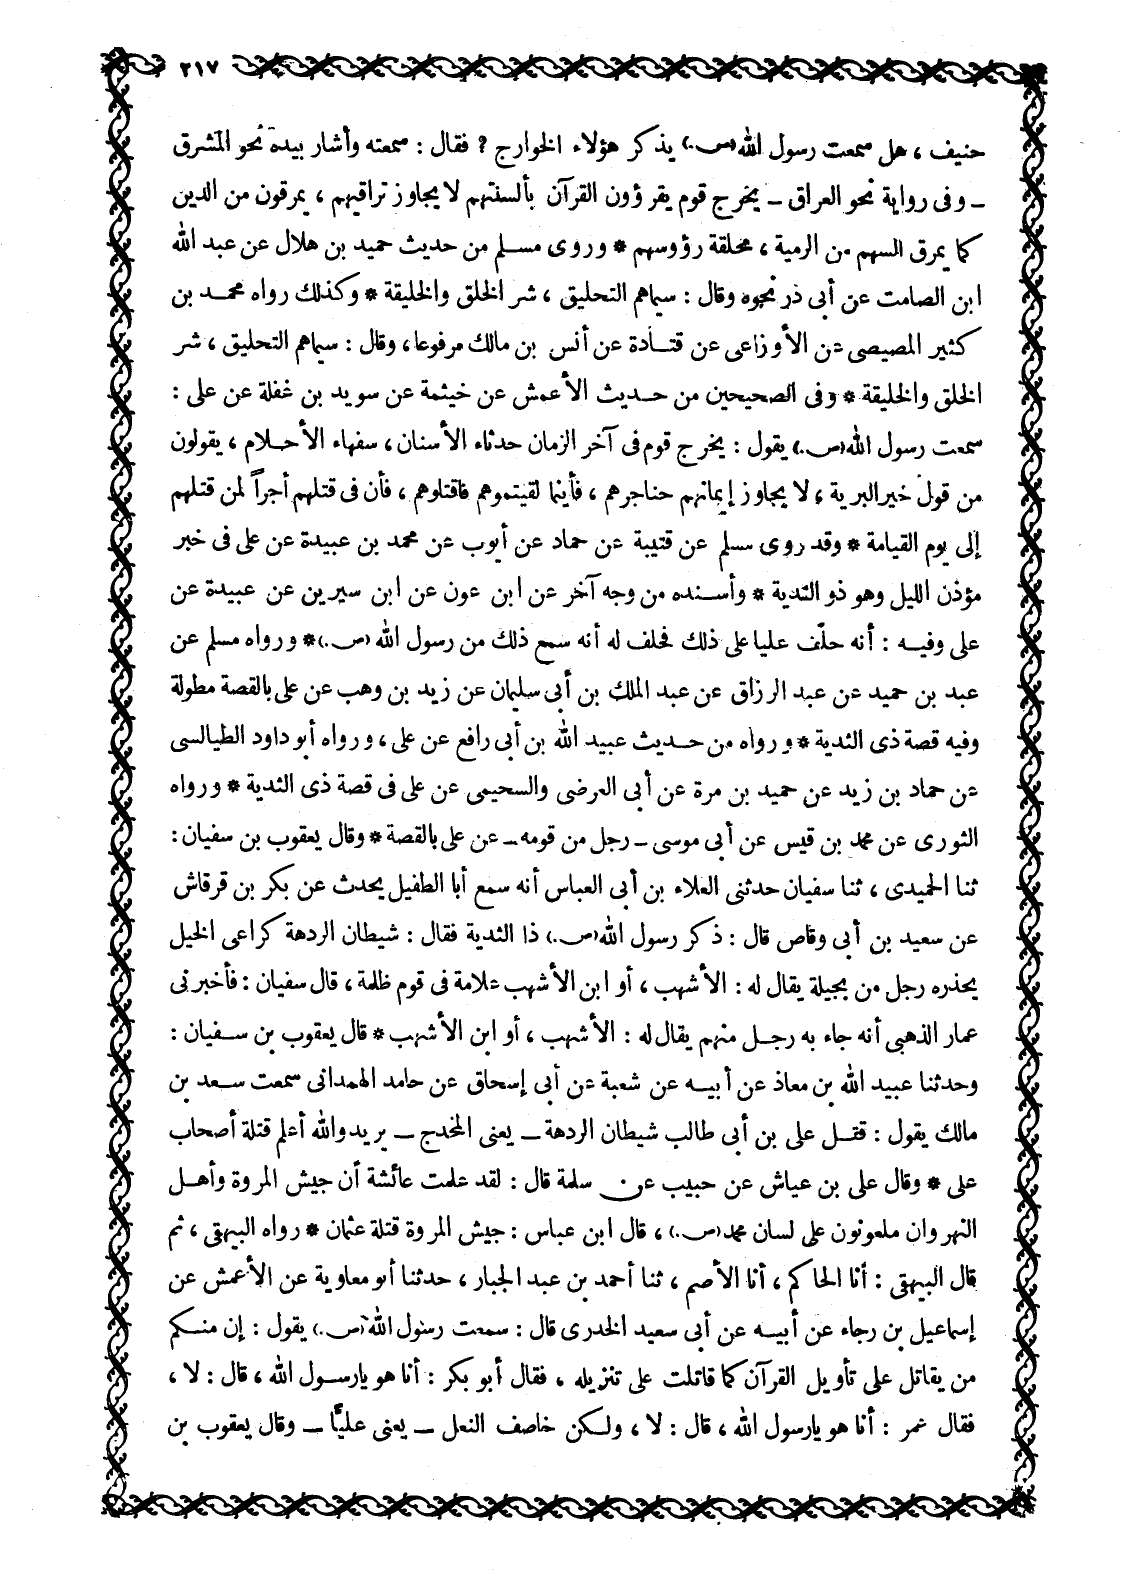 ٢١٧
حنيف ، هل سمعت رسول الله (ص.) يذكر هؤلاء الخوارج ؟ فقال : سمعته وأشار بيده نحو المشرق
ـ وفى رواية نحو العراق ـ يخرج قوم يقرؤون القرآن بألسنتهم لا يجاوز تراقيهم ، يمرقون من الدين
كما يمرق السهم من الرمية ، محلقة رؤوسهم * وروى مسلم من حديث حميد بن هلال عن عبد الله
ابن الصامت عن أبى ذر نحوه وقال : سيماهم التحليق ، شر الخلق والخليقة * وكذلك رواه محمد بن
كثير المصيصى عن الأوزاعى عن قتادة عن أنس بن مالك مرفوعا ، وقال : سيماهم التحليق ، شر
الخلق والخليقة * وفى الصحيحين من حديث الأعمش عن خيثمة عن سويد بن غفلة عن على :
سمعت رسول الله (ص.) يقول : يخرج قوم فى آخر الزمان حدثاء الأسنان ، سفهاء الأحلام ، يقولون
من قول خير البرية ، لا يجاوز إيمانهم حناجرهم ، فأينما لقيتموهم فاقتلوهم ، فأن فى قتلهم أجراً لمن قتلهم
إلى يوم القيامة * وقد روى مسلم عن قتيبة عن حماد عن أيوب عن محمد بن عبيدة عن على فى خبر
مؤذن الليل وهو ذو الثدية * وأسنده من وجه آخر عن ابن عون عن ابن سيرين عن عبيدة عن
على وفيه : أنه حلّف عليا على ذلك فحلف له أنه سمع ذلك من رسول الله (ص.) * ورواه مسلم عن
عبد بن حميد عن عبد الرزاق عن عبد الملك بن أبى سليمان عن زيد بن وهب عن على بالقصة مطولة
وفيه قصة ذى الثدية * ورواه من حديث عبيد الله بن أبى رافع عن على ، ورواه أبو داود الطيالسى
عن حماد بن زيد عن حميد بن مرة عن أبى العرضى والسحيمى عن على فى قصة ذى الثدية * ورواه
الثورى عن محمد بن قيس عن أبى موسى ـ رجل من قومه ـ عن على بالقصة * وقال يعقوب بن سفيان :
ثنا الحميدى ، ثنا سفيان حدثنى العلاء بن أبى العباس أنه سمع أبا الطفيل يحدث عن بكر بن قرقاش
عن سعيد بن أبى وقاص قال : ذكر رسول الله (ص.) ذا الثدية فقال : شيطان الردهة كراعى الخيل
يحذره رجل من بجيلة يقال له : الأشهب ، أو ابن الأشهب علامة فى قوم ظلمة ، قال سفيان : فأخبرنى
عمار الذهبى أنه جاء به رجل منهم يقال له : الأشهب ، أو ابن الأشهب * قال يعقوب بن سفيان :
وحدثنا عبيد الله بن معاذ عن أبيه عن شعبة عن أبى إسحاق عن حامد الهمدانى سمعت سعد بن
مالك يقول : قتل على بن أبى طالب شيطان الردهة ـ يعنى المخدج ـ يريد والله أعلم قتلة أصحاب
على * وقال على بن عياش عن حبيب عن سلمة قال : لقد علمت عائشة أن جيش المروة وأهل
النهروان ملعونون على لسان محمد (ص.) ، قال ابن عباس : جيش المروة قتلة عثمان * رواه البيهقى ، ثم
قال البيهقى : أنا الحاكم ، أنا الأصم ، ثنا أحمد بن عبد الجبار ، حدثنا أبو معاوية عن الأعمش عن
إسماعيل بن رجاء عن أبيه عن أبى سعيد الخدرى قال : سمعت رسول الله (ص.) يقول : إن منكم
من يقاتل على تأويل القرآن كما قاتلت على تنزيله ، فقال أبو بكر : أنا هو يا رسول الله ، قال : لا ،
فقال عمر : أنا هو يا رسول الله ، قال : لا ، ولكن خاصف النعل ـ يعنى عليًّا ـ وقال يعقوب بن